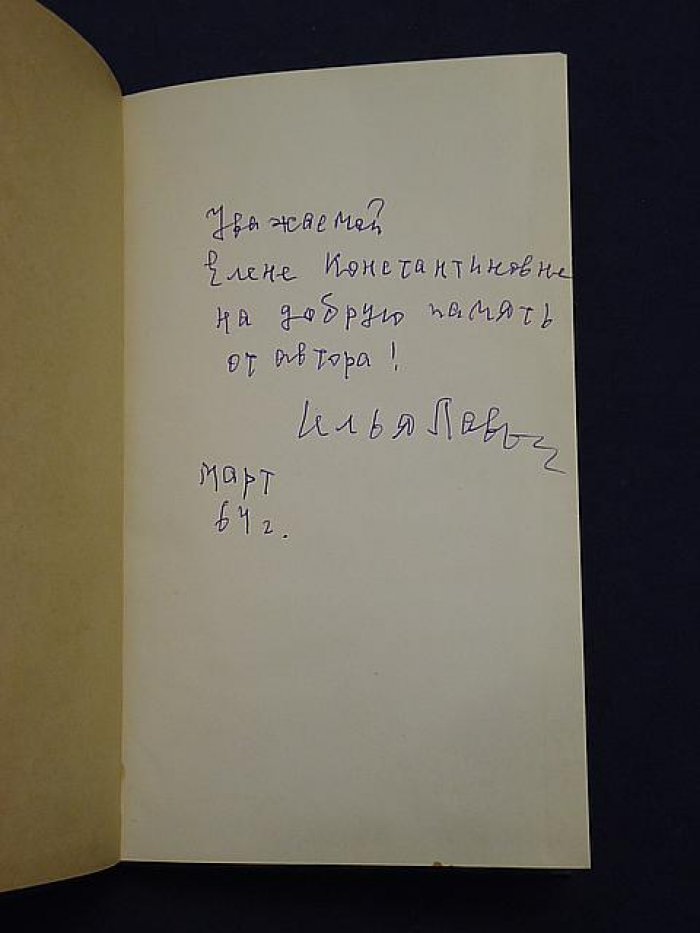 Уважаемой
Елене Константиновне
на добрую память
от автора!
Илья Лавров
март
64 г.